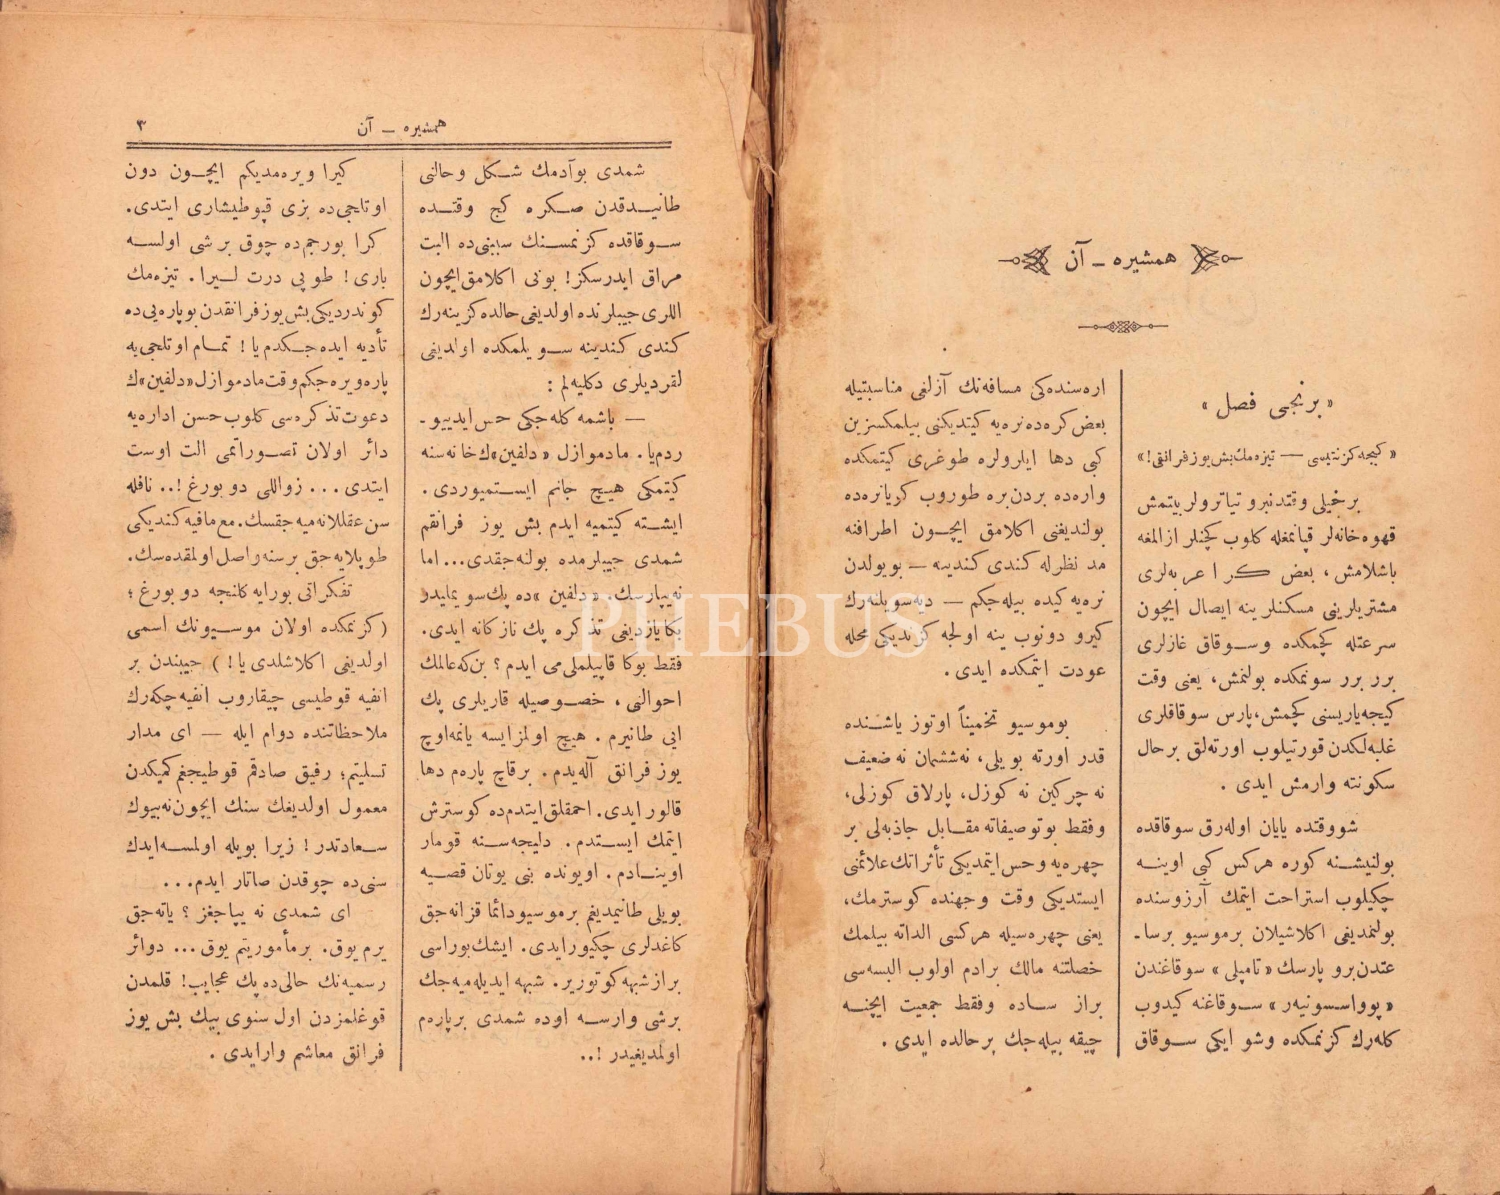 همشیره ــ آن
« برنجی فصل »
« كیجه كزنتیسی — تیزه‌مك بش یوز فرانقی! »
برخیلی وقتدنبرو تیاترولر بیتمش
قهوه‌خانه‌لر قپانمغله كلوب كچنلر ازالمغه
باشلامش ، بعض كرا عربه‌لری
مشتریلرینی مسكنلرینه ایصال ایچون
سرعتله كچمكده وسوقاق غازلری
برر برر سونمكده بولنمش، یعنی وقت
كیجه‌یاریسنی كچمش، پارس سوقاقلری
غلبه‌لكدن قورتیلوب اورته‌لق برحال
سكونته وارمش ایدی .
شووقتده یایان اوله‌رق سوقاقده
بولنیشنه كوره هركس كبی اوینه
چكیلوب استراحت ایتمك آرزوسنده
بولنمدیغی اكلاشیلان برموسیو برساـ
عتدن‌برو پارسك « تامپلی » سوقاغندن
« پوواسونیه‌ر » سوقاغنه كیدوب
كله‌رك كزنمكده وشو ایكی سوقاق
اره‌سنده‌كی مسافه‌نك آزلغی مناسبتیله
بعض كره‌ده نره‌یه كیتدیكنی بیلمكسزین
كبی دها ایلرولره طوغری كیتمكده
واره‌ده بردن‌بره طوروب كریانره‌ده
بولندیغنی اكلامق ایچون اطرافنه
مد نظرله كندی كندینه — بویولدن
نره‌یه كیده بیله‌جكم — دیه‌سویلنه‌رك
كیرو دونوب ینه اولجه كزندیكی محله
عودت ایتمكده ایدی .
بوموسیو تخمیناً اوتوز یاشنده
قدر اورته بویلی، نه‌شمان نه ضعیف
نه چركین نه كوزل، پارلاق كوزلی،
وفقط بوتوصیفاته مقابل جاذبه‌لی بر
چهره‌یه وحس ایتمدیكی تأثراتك علائمنی
ایستدیكی وقت وجهنده كوسترمك،
یعنی چهره‌سیله هركسی الداته بیلمك
خصلتنه مالك برادم اولوب البسه‌سی
براز ساده وفقط جمعیت ایچنه
چیقه بیله‌جك برحالده ایدی .
همشیره ــ آن
٣
شمدی بوآدمك شكل وحالنی
طانیدقدن صكره كچ وقتده
سوقاقده كزنمسنك سببنی‌ده البت
مراق ایدرسكز! بونی اكلامق‌ایچون
اللری جیبلرنده اولدیغی حالده كزینه‌رك
كندی كندینه سویلمكده اولدیغی
لقردیلری دكلیه‌لم :
— باشمه كله‌جكی حس ایدییوـ
ردم‌یا. مادموازل « دلفین »ك‌خانه‌سنه
كیتمكی هیچ جانم ایستمیوردی .
ایشته كیتمیه ایدم بش یوز فرانقم
شمدی جیبلرمده بولنه‌جقدی... اما
نه‌یپارسك. « دلفین »ده پك‌سویملیدر
بكایازدیغی تذكره پك نازكانه ایدی.
فقط بوكا قاپیلملی‌می ایدم ؟ بن‌كه‌عالمك
احوالنی ، خصوصیله قاریلری پك
ایی طانیرم . هیچ اولمزایسه یانمه‌اوچ
یوز فرانق آله‌یدم . برقاچ پاره‌م دها
قالور ایدی. احمقلق ایتدم‌ده كوسترش
ایتمك ایستدم . دلیجه‌سنه قومار
اوینادم . اویونده بنی یوتان قصیه
بویلی طانیمدیغم برموسیودائما قزانه‌جق
كاغدلری چكیورایدی. ایشك‌بوراسی
براز شبهه كوتوریر. شبهه ایدیله‌میه‌جك
برشی وارسه اوده شمدی برپاره‌م
اولمدیغیدر !..
كیرا ویره‌مدیكم ایچون دون
اوتلجی‌ده بزی قپوطیشاری ایتدی.
كرا بورجم‌ده چوق برشی اولسه
باری ! طوپی درت لیرا . تیزه‌مك
كوندردیكی بش‌یوز فرانقدن بوپاره‌یی‌ده
تأدیه ایده‌جكدم یا ! تمام اوتلجی‌یه
پاره‌ویره‌جكم‌وقت‌مادموازل«دلفین»ك
دعوت تذكره‌سی كلوب حسن اداره‌یه
دائر اولان تصوراتمی الت اوست
ایتدی ... زواللی دوبورغ !.. نافله
سن‌عقللانه‌میه‌جقسك. مع‌مافیه كندیكی
طوپلایه‌جق برسنه واصل اولمقده‌سك.
تفكراتی بورایه كلنجه دوبورغ ؛
( كزنمكده اولان موسیونك اسمی
اولدیغی اكلاشلدی یا! ) جیبندن بر
انفیه قوطیسی چیقاروب انفیه چكه‌رك
ملاحظاتنده دوام ایله — ای مدار
تسلیتم؛ رفیق صادقم قوطیجغم كمیكدن
معمول اولدیغك سنك ایچون‌نه‌بیوك
سعادتدر! زیرا بویله اولمسه‌ایدك
سنی‌ده چوقدن صاتار ایدم...
ای شمدی نه یپاجغز ؟ یاته‌جق
یرم یوق. برمأموریتم یوق... دوائر
رسمیه‌نك حالی‌ده پك عجایب! قلمدن
قوغلمزدن اول سنوی بیك بش یوز
فرانق معاشم وارایدی .
PHEBUS